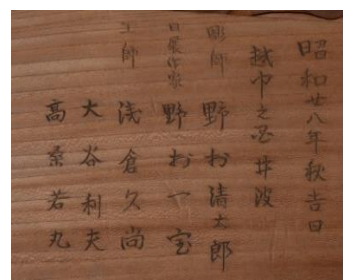 昭和廿八年秋吉日
越中之国井波
彫師 野村清太郎
日展作家 野村一宝
工師 浅倉久尚
大谷利夫
高桑若丸